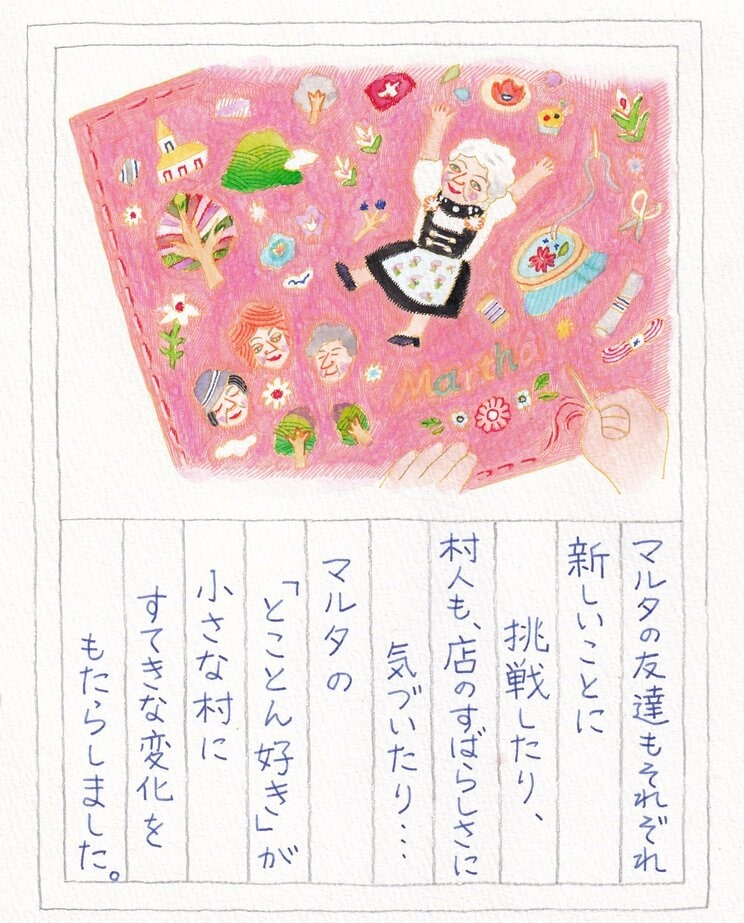 Martha
マルタの友達もそれぞれ
新しいことに
挑戦したり、
村人も、店のすばらしさに
気づいたり…
マルタの
「とことん好き」が
小さな村に
すてきな変化を
もたらしました。